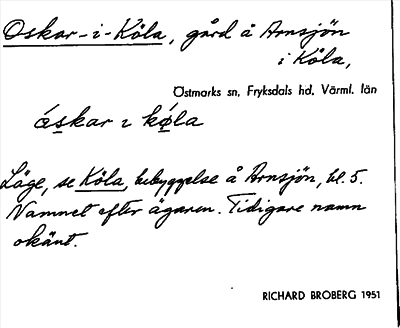 Oskar-i-Köla, gård å Arnsjön
i Köla,
Östmarks sn, Fryksdals hd. Värml. län
óskar ɩ kø̀la
Läge, se Köla, bebyggelse å Arnsjön, bl. 5.
Namnet efter ägaren. Tidigare namn
okänt.
RICHARD BROBERG 1951